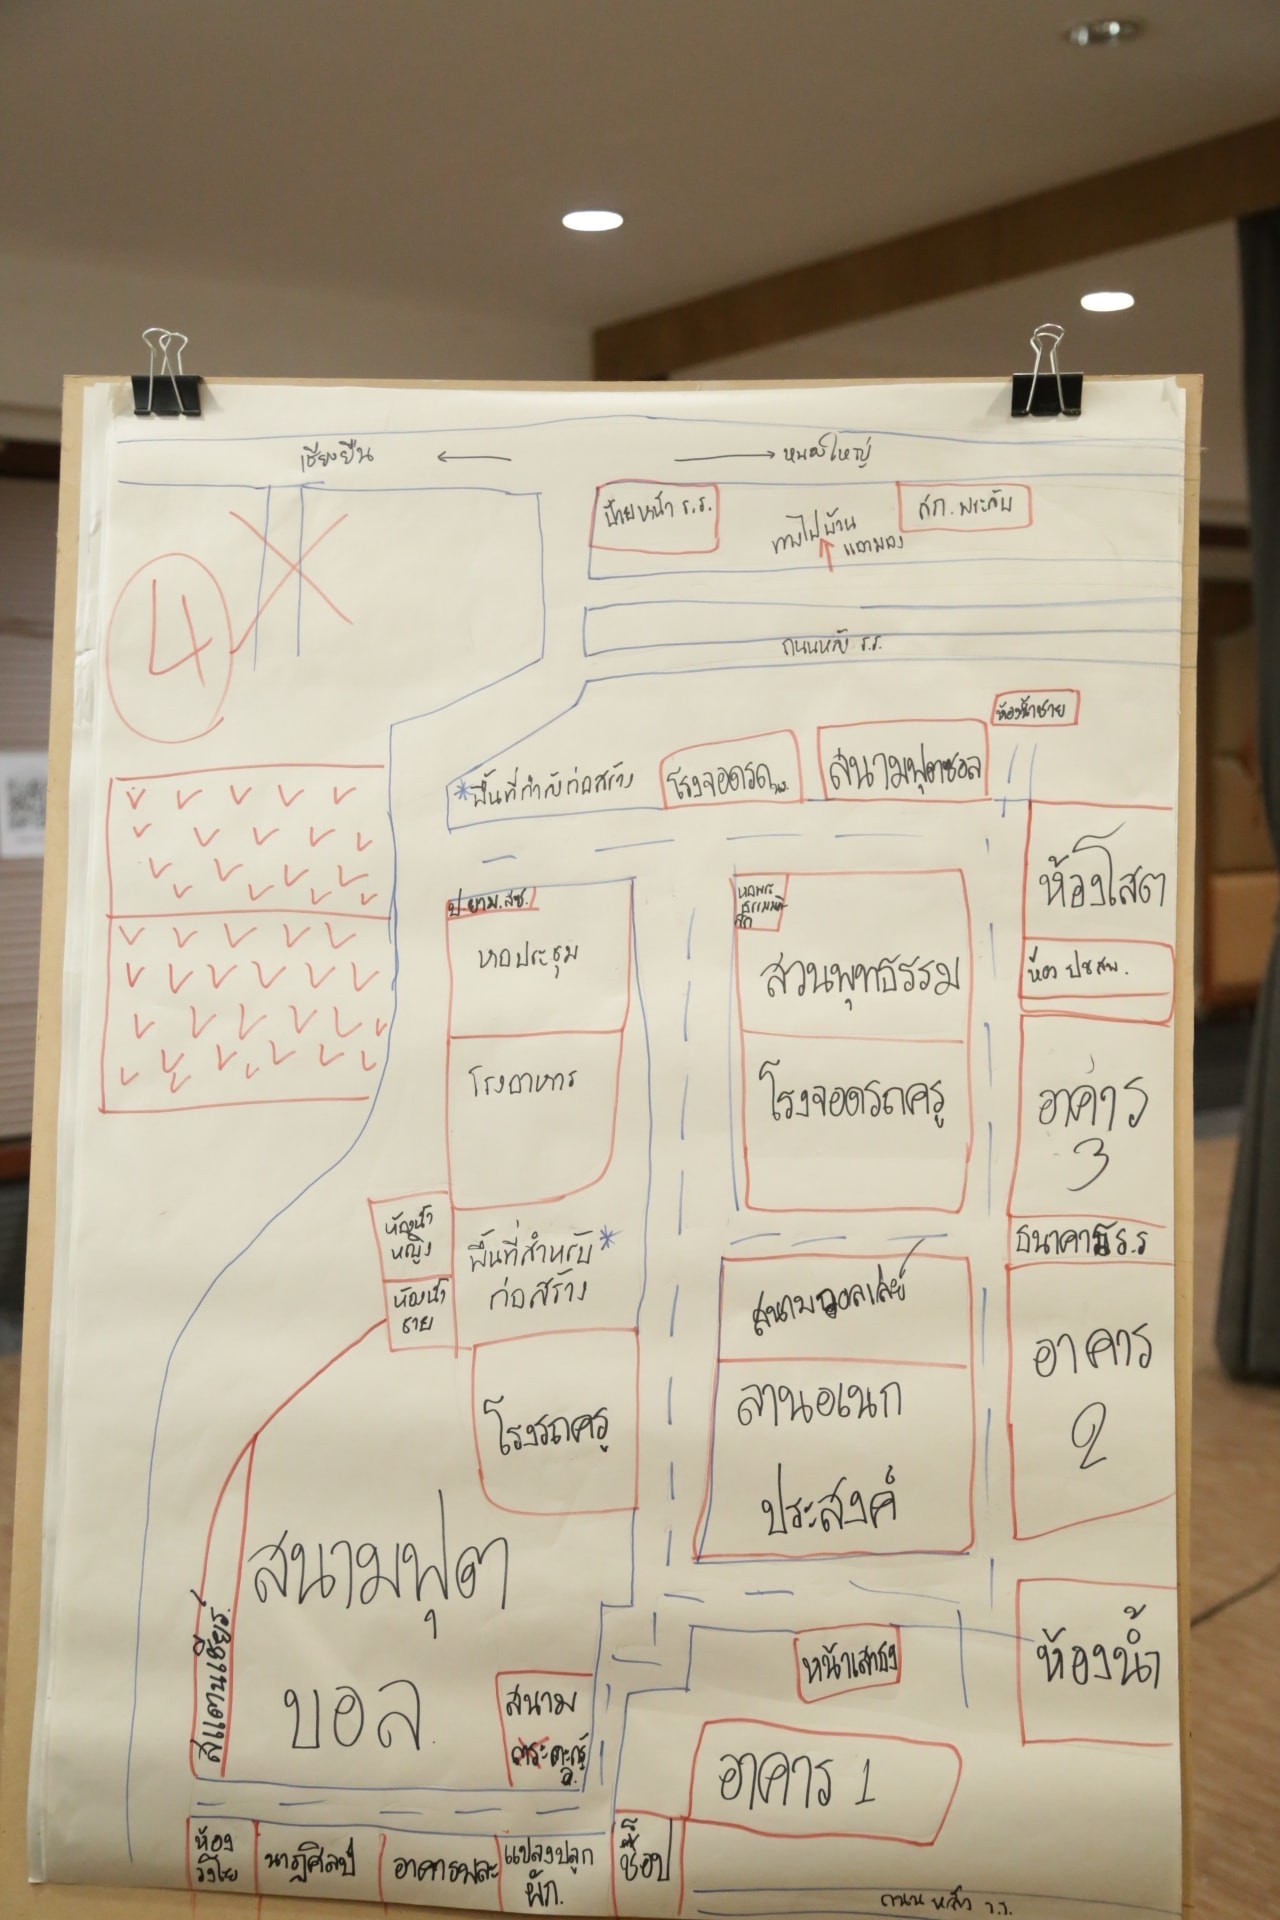 เชียงยืน
หนองใหญ่
ป้ายหน้า ร.ร.
ทางไปบ้าน
สภ. พระลับ
4
ถนนหลัง ร.ร.
ห้องน้ำชาย
*พื้นที่กำลังก่อสร้าง
โรงจอดรถ
สนามฟุตซอล
ห้องโสต
ป้อมยาม.สช.
หอประชุม
สวนพุทธธรรม
ห้อง ปชสพ.
โรงอาหาร
โรงจอดรถครู
อาคาร
3
ห้องน้ำ
หญิง
พื้นที่สำหรับ*
ก่อสร้าง
ธนาคาร ร.ร
ห้องน้ำ
ชาย
สนามวอลเลย์
อาคาร
2
โรงรถครู
ลานอเนก
ประสงค์
สนามฟุต
บอล
สแตนเชียร์
หน้าเสาธง
ห้องน้ำ
สนาม
อาคาร 1
ห้อง
นาฏศิลป์
อาคารพละ
แปลงปลูก
ผัก.
ช็อป
ถนน หลัง ร.ร.